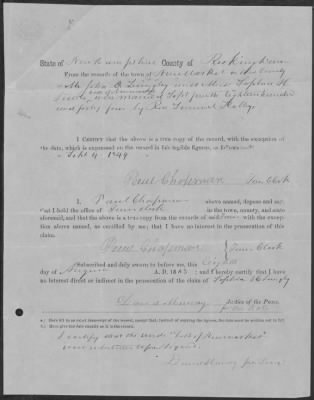 State of New Hampshire County of Rockingham
From the records of the town of New Market in this County
Mr John O. Langley and Miss Sophia H.
was married Sept fourth Eighteen hundred
and forty nine by Rev Samuel Kelley
I CERTIFY that the above is a true copy of the record, with the exception of
the date, which is expressed on the record in this legible figures, as follows:
Sept 4 1849
Paul Chapman Town Clerk
I, Paul Chapman above named, depose and say,
that I hold the office of Town Clerk in the town, county, and state
aforesaid, and that the above is a true copy from the records of said Town with the exception
above named, as certified by me; that I have no interest in the prosecution
of this claim.
Paul Chapman Town Clerk
Subscribed and duly sworn to before me, this Eighth
day of August A. D. 1865; and I hereby certify that I have
no interest direct or indirect in the prosecution of the claim of Sophia H Langley
David Murray Justice of the Peace.
I certify that the words "of Newmarket"
were interlined before signing
David Murray Justice